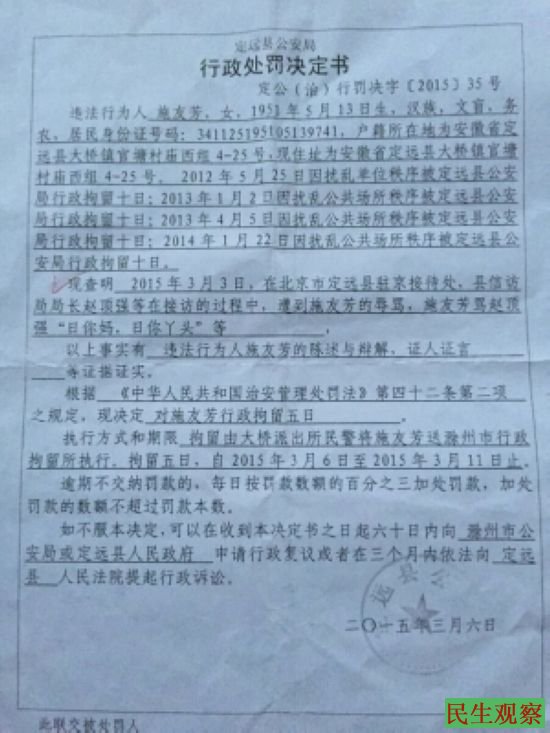 定远县公安局
行政处罚决定书
定公（治）行罚决字〔2015〕35号
违法行为人 施友芳，女，1951年5月13日生，汉族，文盲，务
农，居民身份证号码：341125195105139741，户籍所在地为安徽省定
远县大桥镇官塘村庙西组4-25号，现住址为安徽省定远县大桥镇官塘
村庙西组4-25号。2012年5月25日因扰乱单位秩序被定远县公安
局行政拘留十日；2013年1月2日因扰乱公共场所秩序被定远县公安
局行政拘留十日；2013年4月5日因扰乱公共场所秩序被定远县公安
局行政拘留十日；2014年1月22日因扰乱公共场所秩序被定远县公
安局行政拘留十日。
现查明 2015年3月3日，在北京市定远县驻京接待处，县信访
局局长赵顶强等在接访的过程中，遭到施友芳的辱骂，施友芳骂赵顶
强“日你妈，日你丫头”等 ，
以上事实有 违法行为人施友芳的陈述与辩解，证人证言
等证据证实。
根据 《中华人民共和国治安管理处罚法》第四十二条第二项
之规定，现决定 对施友芳行政拘留五日 。
执行方式和期限 拘留由大桥派出所民警将施友芳送滁州市行政
拘留所执行。拘留五日，自2015年3月6日至2015年3月11日止。
逾期不交纳罚款的，每日按罚款数额的百分之三加处罚款，加处
罚款的数额不超过罚款本数。
如不服本决定，可以在收到本决定书之日起六十日内向 滁州市公
安局或定远县人民政府 申请行政复议或者在三个月内依法向 定远
县 人民法院提起行政诉讼。
远县公
二〇一五年三月六日
此联交被处罚人
民生观察